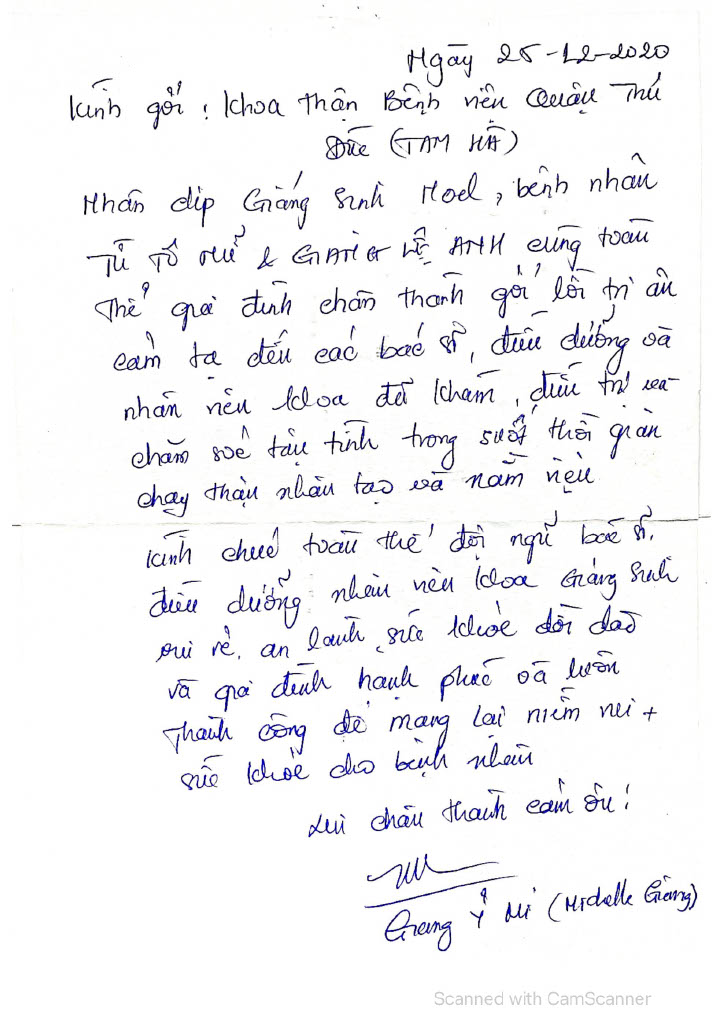 Ngày 25-12-2020
Kính gởi : Khoa thận Bệnh viện Quận Thủ
Đức (TAM HÀ)
Nhân dịp Giáng Sinh Noel, bệnh nhân
TÔ & GIANG LỆ ANH cùng toàn
thể gia đình chân thành gởi lời tri ân
cảm tạ đến các bác sĩ, điều dưỡng và
nhân viên khoa đã khám, điều trị và
chăm sóc tận tình trong suốt thời gian
chạy thận nhân tạo và nằm viện
Kính chúc toàn thể đội ngũ bác sĩ,
điều dưỡng nhân viên khoa Giáng Sinh
vui vẻ, an lành, sức khỏe dồi dào
và gia đình hạnh phúc và luôn
thành công để mang lại niềm vui +
sức khỏe cho bệnh nhân
Xin chân thành cảm ơn !
Giang Ý Mi (Michelle Giang)
Scanned with CamScanner